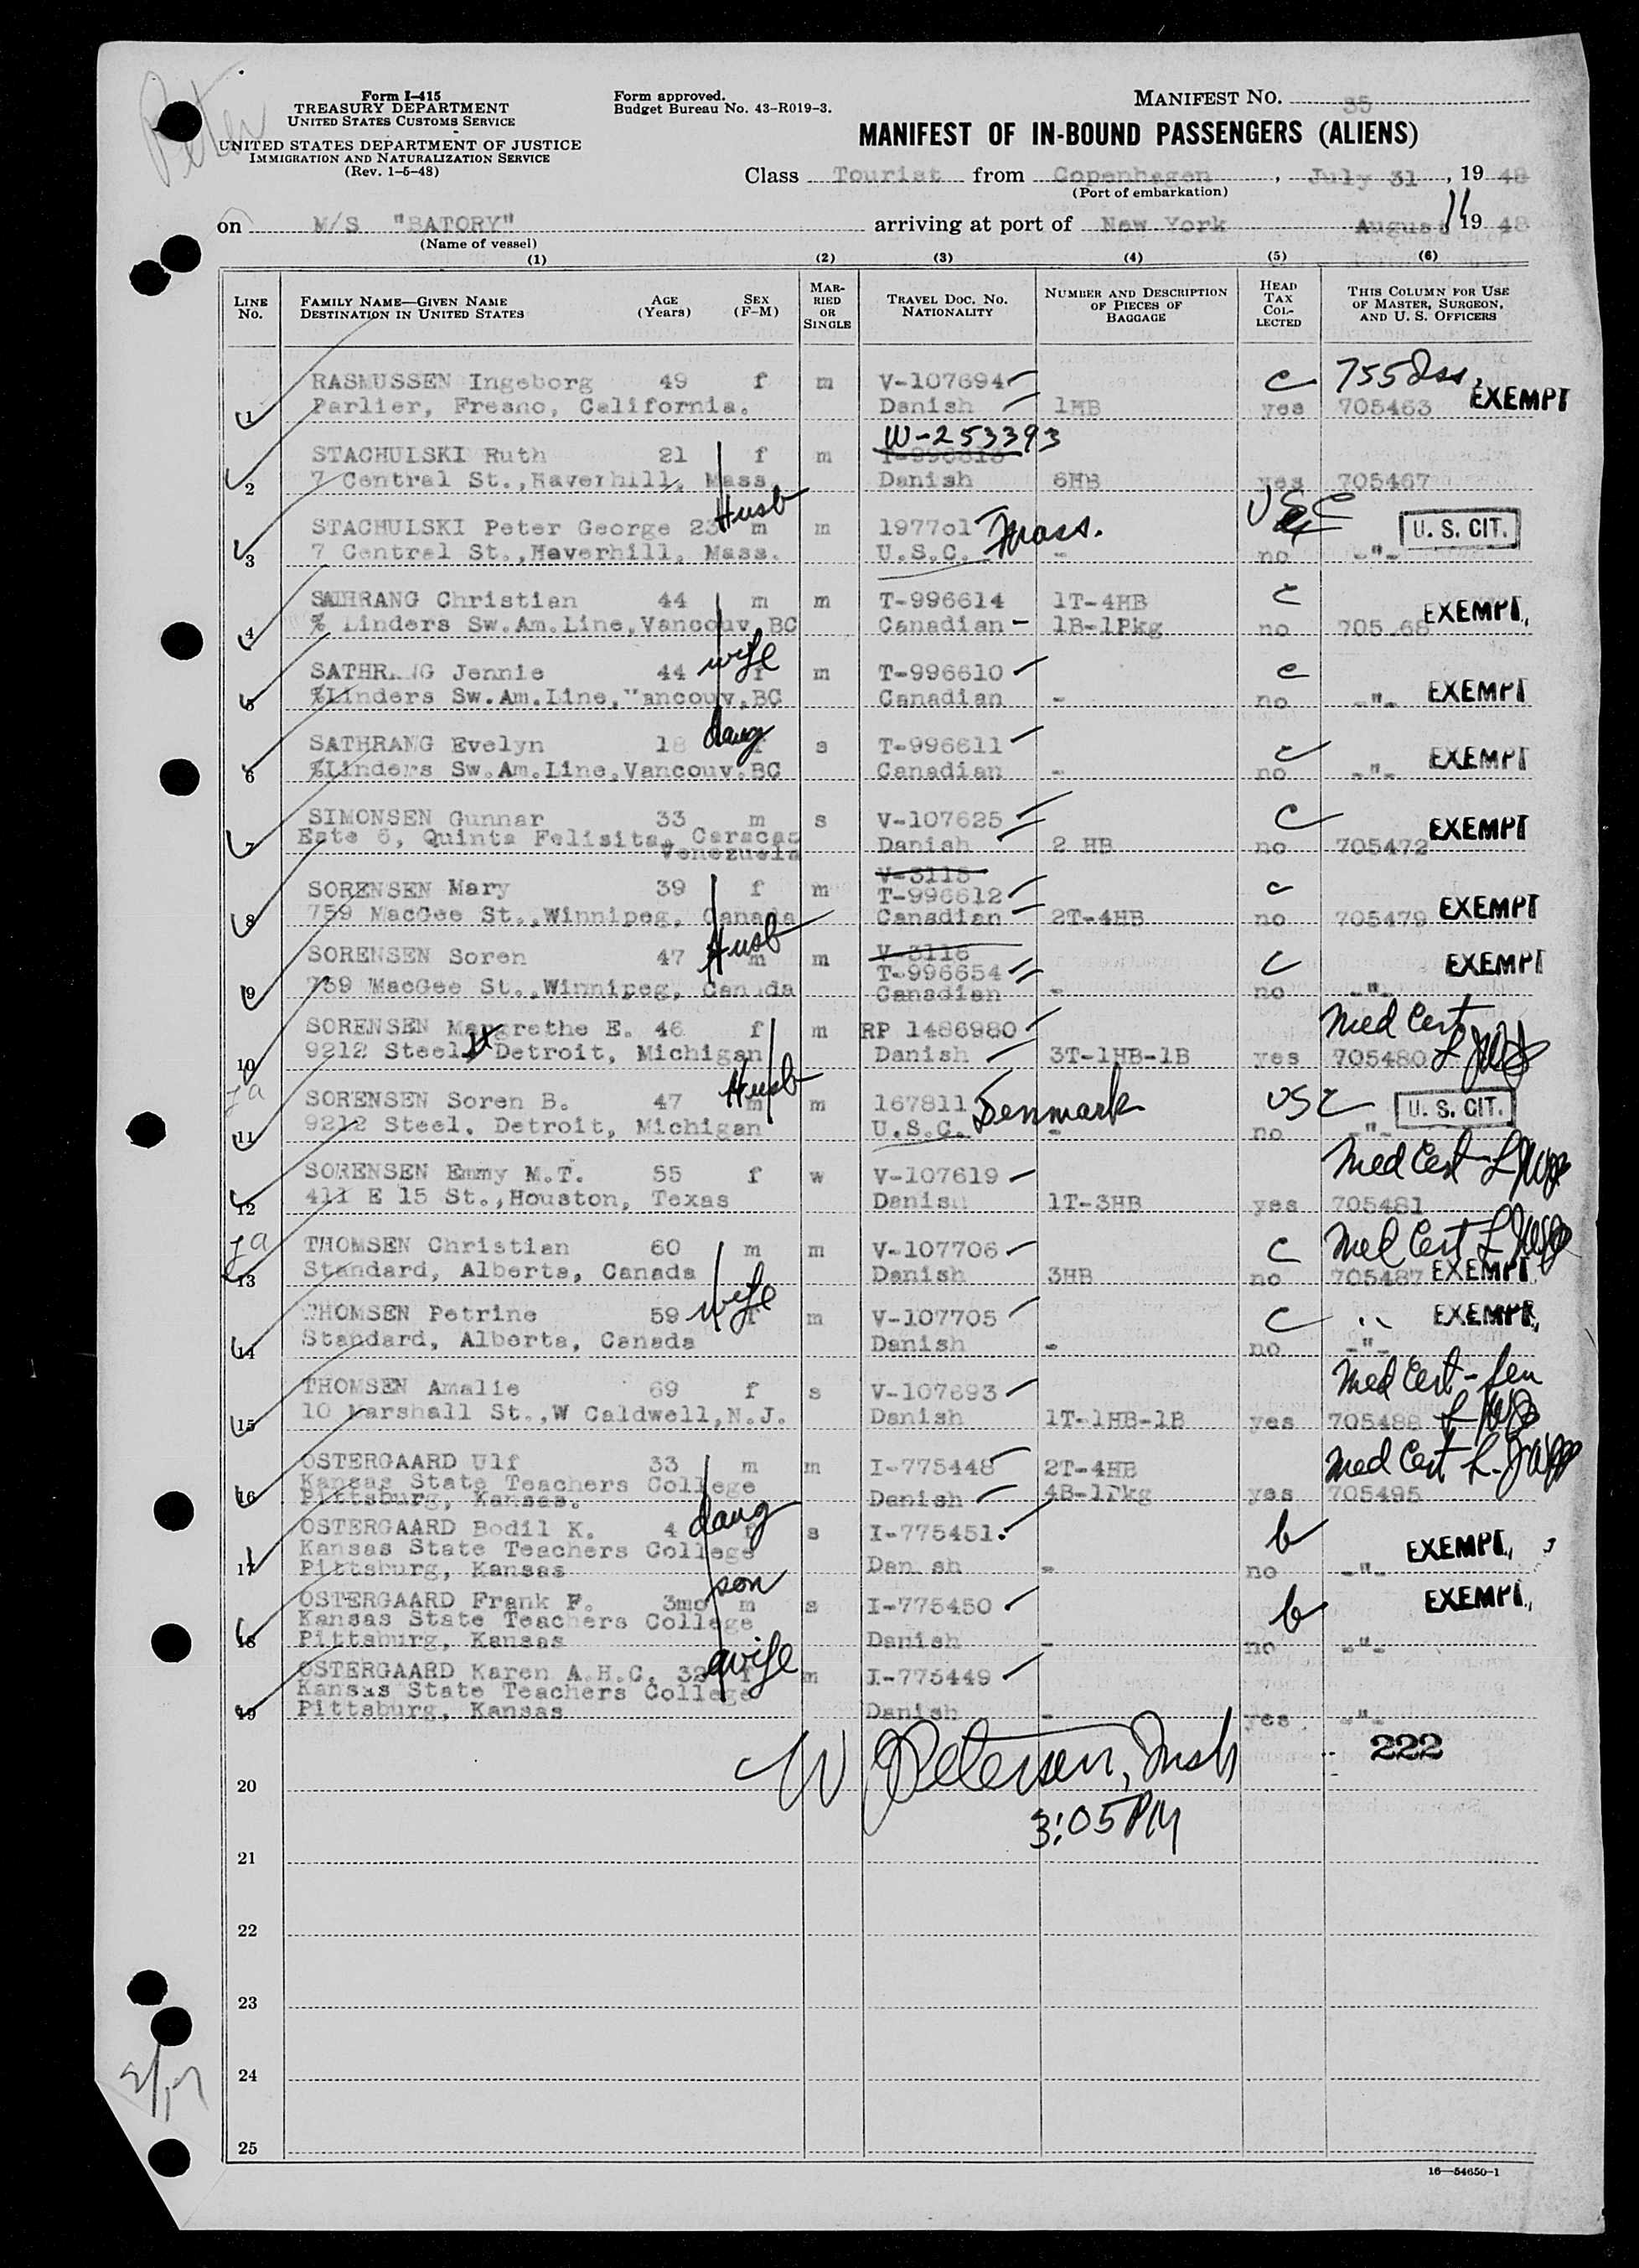 Peter
Form I-415
TREASURY DEPARTMENT
UNITED STATES CUSTOMS SERVICE
UNITED STATES DEPARTMENT OF JUSTICE
IMMIGRATION AND NATURALIZATION SERVICE
(Rev. 1-5-48)
Form approved.
Budget Bureau No. 43-R019-3.
MANIFEST NO. 35
MANIFEST OF IN-BOUND PASSENGERS (ALIENS)
Class Tourist from Copenhagen, July 31, 19 48
(Port of embarkation)
on M/S "BATORY" arriving at port of New York August 11 19 48
(Name of vessel)
(1) (2) (3) (4) (5) (6)
LINE No. FAMILY NAME—GIVEN NAME DESTINATION IN UNITED STATES AGE (Years) SEX (F-M) MARRIED OR SINGLE TRAVEL DOC. NO. NATIONALITY NUMBER AND DESCRIPTION OF PIECES OF BAGGAGE HEAD TAX COLLECTED THIS COLUMN FOR USE OF MASTER, SURGEON, AND U. S. OFFICERS
RASMUSSEN Ingeborg 49 f m V-107694 c 755
1 Parlier, Fresno, California. Danish 1HB yes 705463 EXEMPT
W-253393
STACHULSKI Ruth 21 f m
2 7 Central St.,Haverhill, Mass. Danish 6HB yes 705467
Husb USC
STACHULSKI Peter George 23 m m 197701 Mass. U. S. CIT.
3 7 Central St.,Haverhill, Mass. U.S.C. - no -"-
SATHRANG Christian 44 m m T-996614 1T-4HB c
4 % Linders Sw.Am.Line,Vancouv.BC Canadian 1B-1Pkg no 705 68 EXEMPT
SATHRANG Jennie 44 wife f m T-996610 c
5 %Linders Sw.Am.Line,Vancouv.BC Canadian - no -"- EXEMPT
SATHRANG Evelyn 18 daug s T-996611 c
6 %Linders Sw.Am.Line,Vancouv.BC Canadian - no -"- EXEMPT
SIMONSEN Gunnar 33 m s V-107625 c EXEMPT
7 Este 6, Quinta Felisita, Caracas Venezuela Danish 2 HB no 705472
V-3115
SORENSEN Mary 39 f m T-996612 c
8 759 MacGee St.,Winnipeg, Canada Canadian 2T-4HB no 705479 EXEMPT
Husb V-3116
SORENSEN Soren 47 m m T-996654 c EXEMPT
9 759 MacGee St.,Winnipeg, Canada Canadian - no -"-
SORENSEN Margrethe E. 46 f m RP 1486980 Med Cert
10 9212 Steel, Detroit, Michigan Danish 3T-1HB-1B yes 705480
SORENSEN Soren B. 47 Husb m m 167811 Denmark USC U. S. CIT.
11 9212 Steel, Detroit, Michigan U.S.C. - no -"-
SORENSEN Emmy M.T. 55 f w V-107619 Med Cert
12 411 E 15 St.,Houston, Texas Danish 1T-3HB yes 705481
THOMSEN Christian 60 m m V-107706 c Med Cert
13 Standard, Alberta, Canada Danish 3HB no 705487 EXEMPT
THOMSEN Petrine 59 wife f m V-107705 c EXEMPT
14 Standard, Alberta, Canada Danish - no -"-
THOMSEN Amalie 69 f s V-107693 Med Cert - Sen
15 10 Marshall St.,W Caldwell,N.J. Danish 1T-1HB-1B yes 705488
OSTERGAARD Ulf 33 m m I-775448 2T-4HB Med Cert
Kansas State Teachers College
16 Pittsburg, Kansas. Danish 4B-1Pkg yes 705495
OSTERGAARD Bodil K. 4 daug f s I-775451 b
Kansas State Teachers College EXEMPT
17 Pittsburg, Kansas Danish - no -"-
OSTERGAARD Frank F. 3mo son m s I-775450 b EXEMPT
Kansas State Teachers College
18 Pittsburg, Kansas Danish - no -"-
OSTERGAARD Karen A.H.C. 32 wife f m I-775449
Kansas State Teachers College
19 Pittsburg, Kansas Danish - yes -"-
222
W Petersen, Insp
20
3:05 PM
21
22
23
24
25
16—54650-1